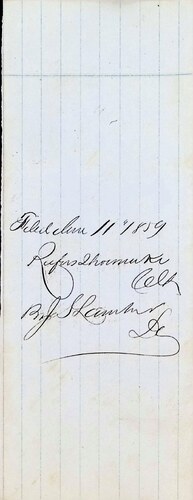 Filed June 11th 1859
Rufus Shoemaker
Clk
By J S Lambert
De